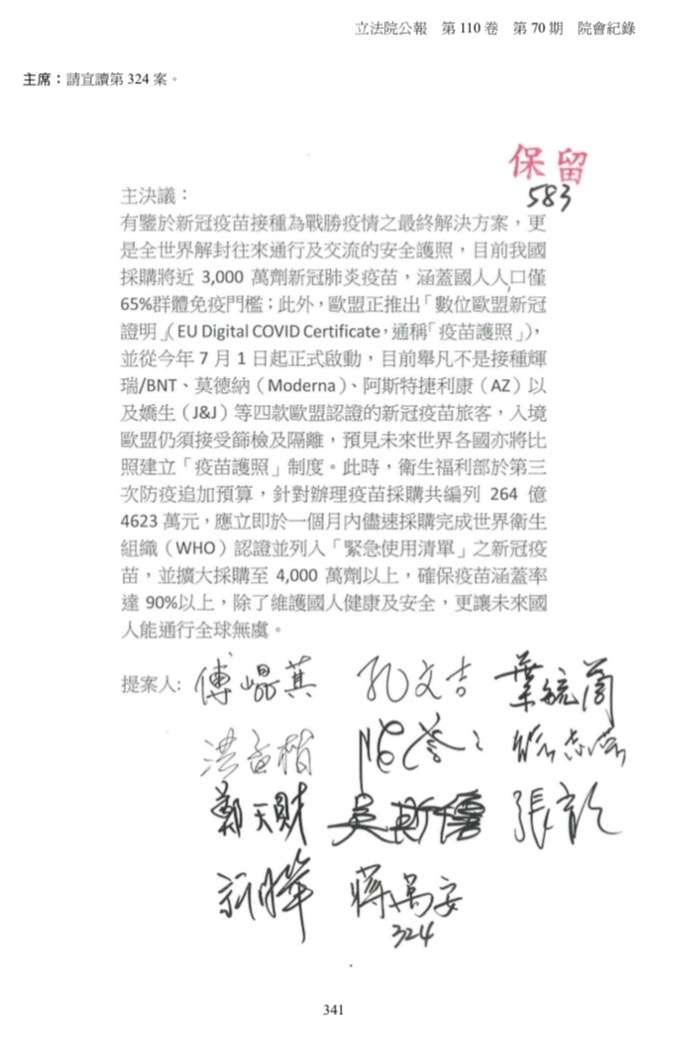 立法院公報 第 110 卷 第 70 期 院會紀錄
主席：請宣讀第 324 案。
保留
583
主決議：
有鑒於新冠疫苗接種為戰勝疫情之最終解決方案，更
是全世界解封往來通行及交流的安全護照，目前我國
採購將近 3,000 萬劑新冠肺炎疫苗，涵蓋國人人口僅
65%群體免疫門檻；此外，歐盟正推出「數位歐盟新冠
證明」（EU Digital COVID Certificate，通稱「疫苗護照」），
並從今年 7 月 1 日起正式啟動，目前舉凡不是接種輝
瑞/BNT、莫德納（Moderna）、阿斯特捷利康（AZ）以
及嬌生（J&J）等四款歐盟認證的新冠疫苗旅客，入境
歐盟仍須接受篩檢及隔離，預見未來世界各國亦將比
照建立「疫苗護照」制度。此時，衛生福利部於第三
次防疫追加預算，針對辦理疫苗採購共編列 264 億
4623 萬元，應立即於一個月內儘速採購完成世界衛生
組織（WHO）認證並列入「緊急使用清單」之新冠疫
苗，並擴大採購至 4,000 萬劑以上，確保疫苗涵蓋率
達 90%以上，除了維護國人健康及安全，更讓未來國
人能通行全球無虞。
提案人: 傅崐萁 孔文吉 葉毓蘭
洪孟楷
鄭天財 吳斯懷
蔣萬安
324
341